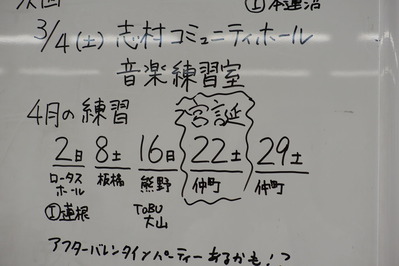 次回
①本蓮沼
3/4(土) 志村コミュニティホール
音楽練習室
4月の練習
宮誕
2日 8土 16日 22土 29土
ロータスホール 板橋 熊野 仲町 仲町
①蓮根 TOBU大山
アフターバレンタインパーティーあるかも!?